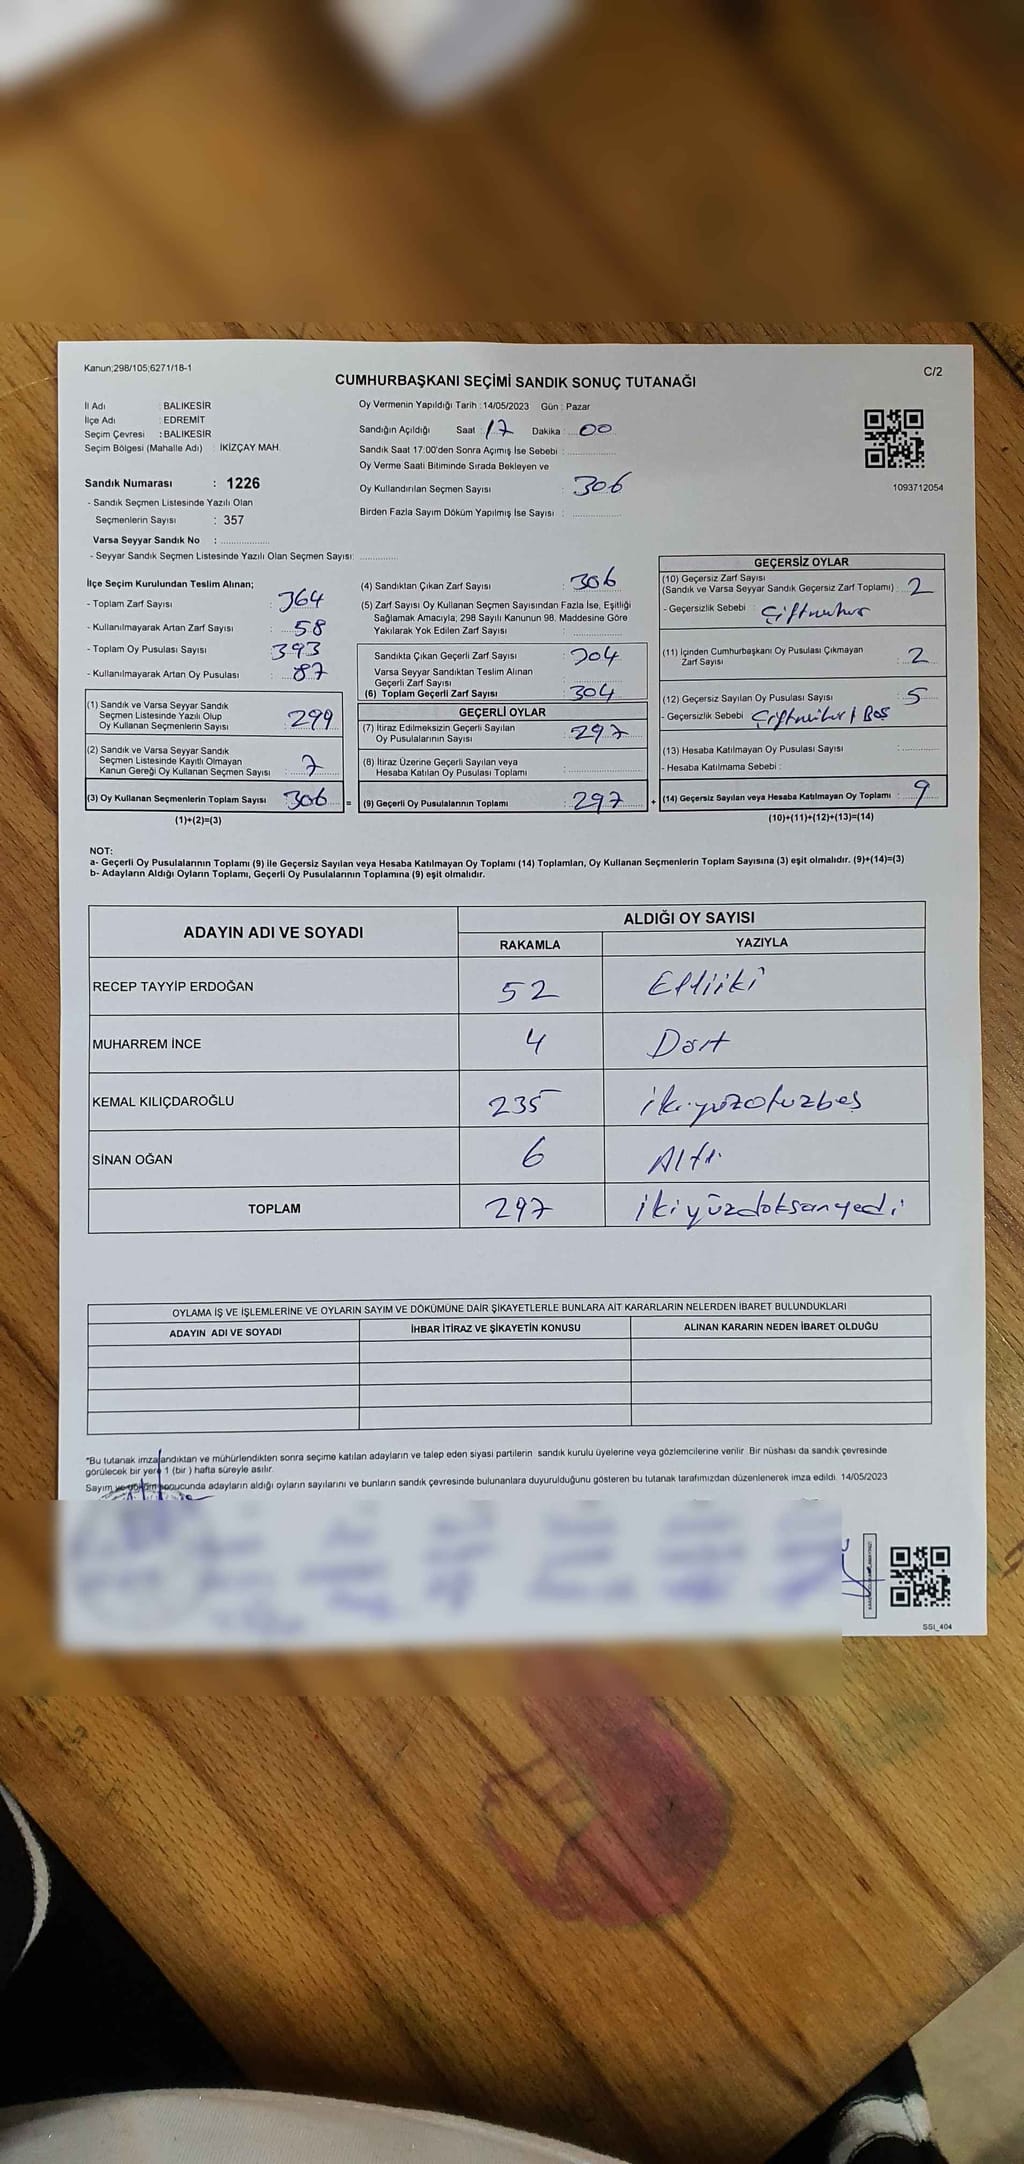 Kanun;298/105;6271/18-1
C/2
CUMHURBAŞKANI SEÇİMİ SANDIK SONUÇ TUTANAĞI
İl Adı : BALIKESİR
İlçe Adı : EDREMİT
Seçim Çevresi : BALIKESİR
Seçim Bölgesi (Mahalle Adı) : İKİZÇAY MAH.
Sandık Numarası : 1226
- Sandık Seçmen Listesinde Yazılı Olan
Seçmenlerin Sayısı : 357
Varsa Seyyar Sandık No :
- Seyyar Sandık Seçmen Listesinde Yazılı Olan Seçmen Sayısı:
Oy Vermenin Yapıldığı Tarih :14/05/2023 Gün : Pazar
Sandığın Açıldığı Saat : 17 Dakika : 00
Sandık Saat 17:00'den Sonra Açımış İse Sebebi :
Oy Verme Saati Bitiminde Sırada Bekleyen ve
Oy Kullandırılan Seçmen Sayısı : 306
Birden Fazla Sayım Döküm Yapılmış İse Sayısı :
1093712054
İlçe Seçim Kurulundan Teslim Alınan;
- Toplam Zarf Sayısı : 364
- Kullanılmayarak Artan Zarf Sayısı : 58
- Toplam Oy Pusulası Sayısı : 393
- Kullanılmayarak Artan Oy Pusulası : 87
(1) Sandık ve Varsa Seyyar Sandık
Seçmen Listesinde Yazılı Olup
Oy Kullanan Seçmenlerin Sayısı : 299
(2) Sandık ve Varsa Seyyar Sandık
Seçmen Listesinde Kayıtlı Olmayan
Kanun Gereği Oy Kullanan Seçmen Sayısı : 7
(3) Oy Kullanan Seçmenlerin Toplam Sayısı : 306 =
(1)+(2)=(3)
(4) Sandıktan Çıkan Zarf Sayısı : 306
(5) Zarf Sayısı Oy Kullanan Seçmen Sayısından Fazla İse, Eşitliği
Sağlamak Amacıyla; 298 Sayılı Kanunun 98. Maddesine Göre
Yakılarak Yok Edilen Zarf Sayısı :
Sandıkta Çıkan Geçerli Zarf Sayısı : 304
Varsa Seyyar Sandıktan Teslim Alınan
Geçerli Zarf Sayısı :
(6) Toplam Geçerli Zarf Sayısı : 304
GEÇERLİ OYLAR
(7) İtiraz Edilmeksizin Geçerli Sayılan
Oy Pusulalarının Sayısı : 297
(8) İtiraz Üzerine Geçerli Sayılan veya
Hesaba Katılan Oy Pusulası Toplamı :
(9) Geçerli Oy Pusulalarının Toplamı : 297 +
GEÇERSİZ OYLAR
(10) Geçersiz Zarf Sayısı
(Sandık ve Varsa Seyyar Sandık Geçersiz Zarf Toplamı) : 2
- Geçersizlik Sebebi : Çiftmühür
(11) İçinden Cumhurbaşkanı Oy Pusulası Çıkmayan
Zarf Sayısı : 2
(12) Geçersiz Sayılan Oy Pusulası Sayısı : 5
- Geçersizlik Sebebi : Çiftmühür / Boş
(13) Hesaba Katılmayan Oy Pusulası Sayısı :
- Hesaba Katılmama Sebebi :
(14) Geçersiz Sayılan veya Hesaba Katılmayan Oy Toplamı : 9
(10)+(11)+(12)+(13)=(14)
NOT:
a- Geçerli Oy Pusulalarının Toplamı (9) ile Geçersiz Sayılan veya Hesaba Katılmayan Oy Toplamı (14) Toplamları, Oy Kullanan Seçmenlerin Toplam Sayısına (3) eşit olmalıdır. (9)+(14)=(3)
b- Adayların Aldığı Oyların Toplamı, Geçerli Oy Pusulalarının Toplamına (9) eşit olmalıdır.
ADAYIN ADI VE SOYADI
ALDIĞI OY SAYISI
RAKAMLA YAZIYLA
RECEP TAYYİP ERDOĞAN 52 Elliiki
MUHARREM İNCE 4 Dört
KEMAL KILIÇDAROĞLU 235 ikiyüzotuzbeş
SİNAN OĞAN 6 Altı
TOPLAM 297 ikiyüzdoksanyedi
OYLAMA İŞ VE İŞLEMLERİNE VE OYLARIN SAYIM VE DÖKÜMÜNE DAİR ŞİKAYETLERLE BUNLARA AİT KARARLARIN NELERDEN İBARET BULUNDUKLARI
ADAYIN ADI VE SOYADI İHBAR İTİRAZ VE ŞİKAYETİN KONUSU ALINAN KARARIN NEDEN İBARET OLDUĞU
"Bu tutanak imzalandıktan ve mühürlendikten sonra seçime katılan adayların ve talep eden siyasi partilerin sandık kurulu üyelerine veya gözlemcilerine verilir. Bir nüshası da sandık çevresinde
görülecek bir yere 1 (bir ) hafta süreyle asılır.
Sayım ve döküm sonucunda adayların aldığı oyların sayılarını ve bunların sandık çevresinde bulunanlara duyurulduğunu gösteren bu tutanak tarafımızdan düzenlenerek imza edildi. 14/05/2023
SSI_404